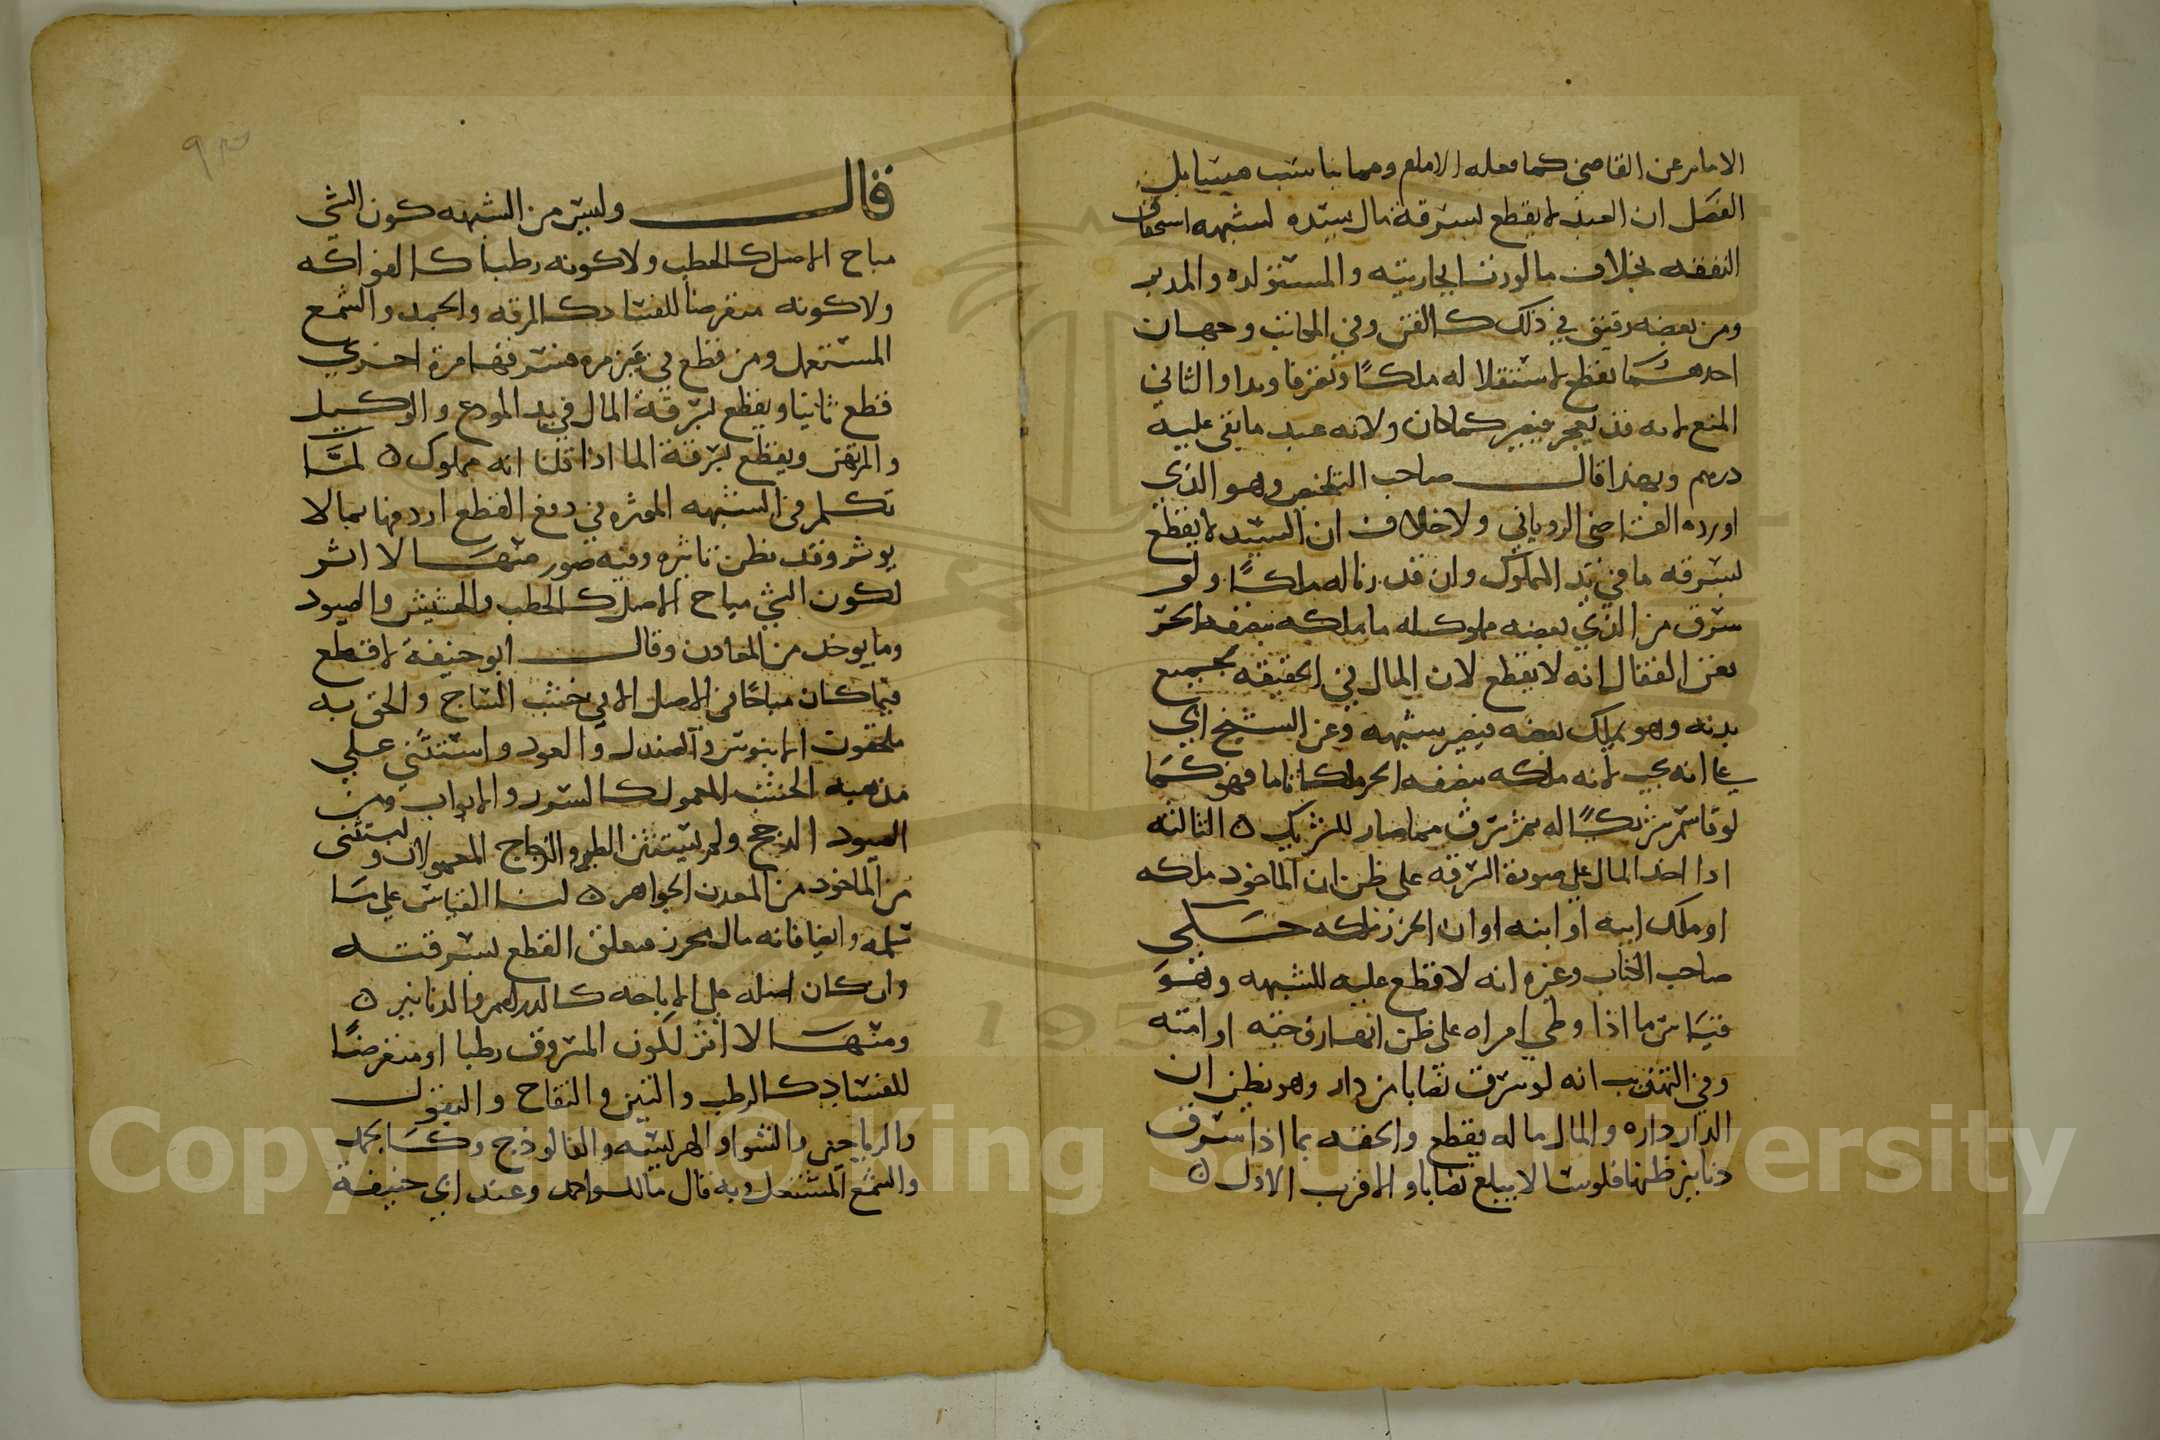 الامام عن القاضي كما فعله الامام ومما يناسب مسايل
الفصل ان العبد لا يقطع بسرقة مال سيده لشبهه استحقاق
النفقه بخلاف ما لو زنا بجاريته والمستولده والمدبر
ومن بعضه رقيق في ذلك كالقن وفي المكاتب وجهان
احدهما يقطع لاستقلاله ملكا وتصرفا ويدا والثاني
المنع لانه قد يعجز فيصير كما كان ولانه عبد ما بقى عليه
درهم وبهذا قال صاحب التلخيص وهو الذي
اورده القاضى الروياني ولا خلاف ان السيد لا يقطع
بسرقه ما في يد المملوك وان قدرنا له ملكا ولو
سرق من الذي بعضه مملوك له ما ملكه بنصفه الحر
فعن القفال انه لا يقطع لان المال في الحقيقه لجميع
بدنه وهو يملك بعضه فيصير شبهه وعن الشيخ ابي
علي انه يجب لانه ملكه بنصفه الحر ملكا تاما فهو كما
لو قاسم شريكا له ثم سرق مما صار للشريك ٥ الثالثه
اذا اخذ المال على صورة السرقه على ظن ان الماخوذ ملكه
او ملك ابيه او ابنه او ان الحرز ملكه حكي
صاحب الكتاب وغيره انه لا قطع عليه للشبهه وهو
قياس ما اذا وطي امراه على ظن انها زوجته او امته
وفي التهذيب انه لو سرق نصابا من دار وهو يظن ان
الدار داره والمال ماله يقطع والحقه بما اذا سرق
دنانير ظنها فلوسا لا يبلغ نصابا والاقرب الاول ٥
قال وليس من الشبهه كون الشي
مباح الاصل كالحطب ولا كونه رطبا كالفواكه
ولا كونه متعرضا للفساد كالمرقه والجمد والشمع
المستعمل ومن قطع في غير مره فسرقها مرة اخري
قطع ثانيا ويقطع بسرقة المال في يد المودع والوكيل
والمرتهن ويقطع بسرقة الما اذا قلنا انه مملوك ٥ لما
تكلم في الشبهه الموثره في دفع القطع اردفها بما لا
يوثر وقد يظن تاثيره وفيه صور منها لا اثر
لكون الشي مباح الاصل كالحطب والحشيش والصيود
وما يوخذ من المعادن وقال ابو حنيفة لا قطع
فيما كان مباحا في الاصل الا في خشب الساج والحق به
ملحقون الابنوس والصندل والعود واستثني علي
مذهبه الخشب المعمول كالسرر والابواب ومن
الصيود الدجج ولم يستثن الطير والزجاج المعمولان واستثنى
من الماخوذ من المعدن الجواهر ٥ لنا القياس على ما
سلمه وايضا فانه مال محرز فيعلق القطع بسرقته
وان كان اصله على الاباحه كالدراهم والدنانير ٥
ومنها لا اثر لكون المسروق رطبا او متعرضا
للفساد كالرطب والتين والتفاح والبقول
والرياحين والشوا والهريسه والفالوذج وكا لجمد
والشمع المشتعل وبه قال مالك واحمد وعند ابي حنيفة
Copyright © King Saud University